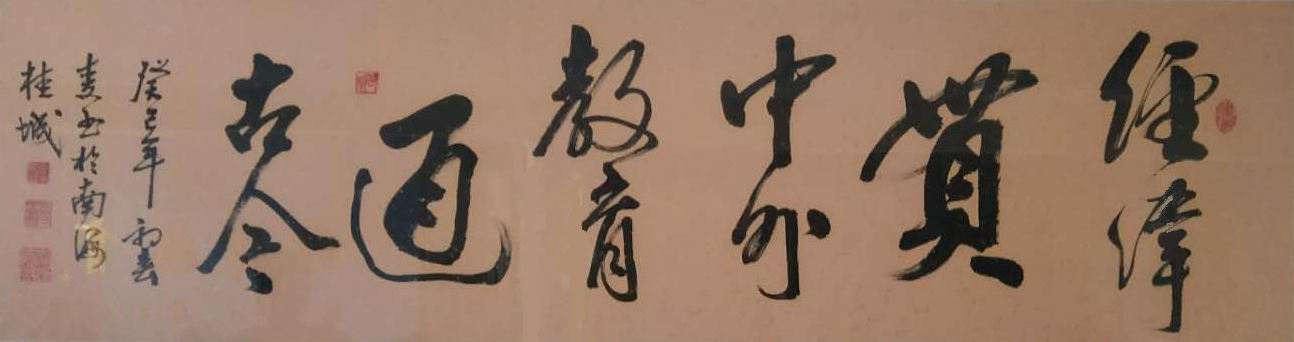 經緯
貫
中外
教育
通
古今
癸巳年初春
書於南海
桂城